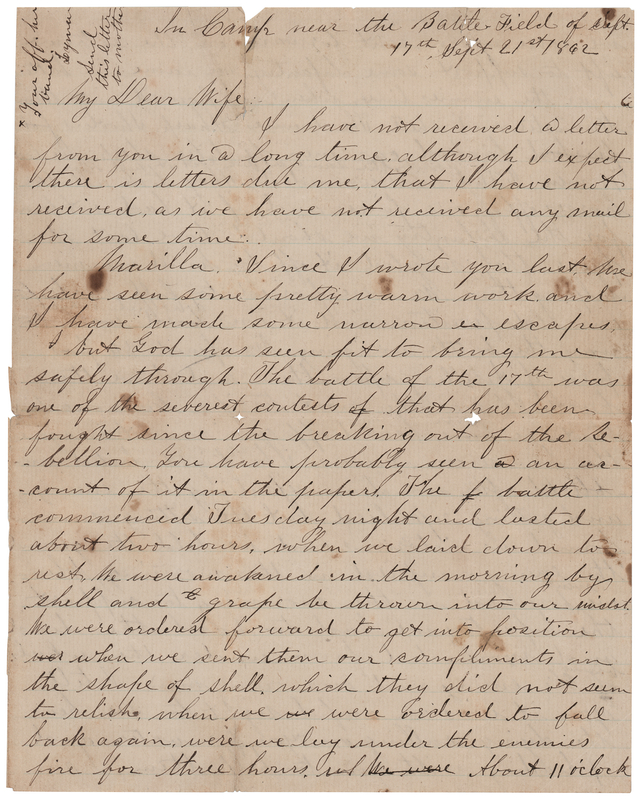 * Your aff. hus
band
Lyman
Send
this letter
to mother
In Camp near the Battle Field of Sept.
17th, Sept 21st 1862
My Dear Wife.
I have not received a letter
from you in a long time. although I expect
there is letters due me, that I have not
received, as we have not recieved any mail
for some time.
Marilla. Since I wrote you last we
have seen some pretty warm work and
I have made some narrow escapes,
but God has seen fit to bring me
safely through. The battle of the 17th was
one of the severest contests of that has been
fought since the breaking out of the Re-
-bellion, You have probably seen a an ac-
-count of it in the papers. The f battle
commenced Tuesday night and lasted
about two hours, when we laid down to
rest, We were awakened in the morning by
shell and grape be thrown into our midst.
We were ordered forward to get into position
when we sent them our compliments in
the shape of shell, which they did not seem
to relish, when we we were ordered to fall
back again, were we lay under the enemies
fire for three hours. We were About 11 oclock